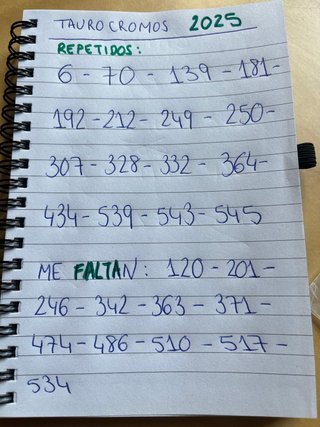 TAUROCROMOS 2025
REPETIDOS:
6 - 70 - 139 - 181 -
192 - 212 - 249 - 250 -
307 - 328 - 332 - 364 -
434 - 539 - 543 - 545
ME FALTAN: 120 - 201 -
246 - 342 - 363 - 371 -
474 - 486 - 510 - 517 -
534